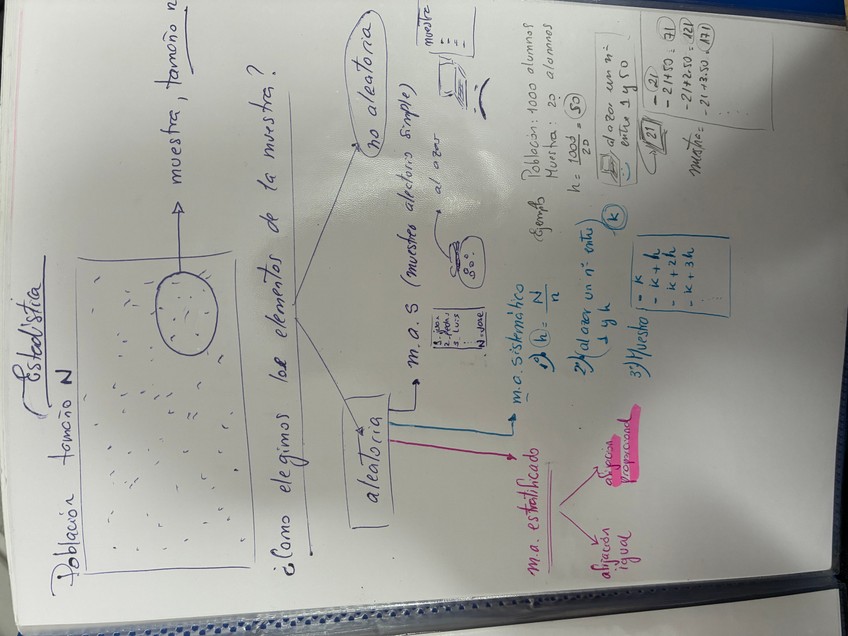 Estadística
Población tamaño N
muestra, tamaño n
¿Como elegimos los elementos de la muestra?
aleatoria
no aleatoria
m.a.s (muestreo aleatorio simple)
2. Pedro
3. Luis
N. Jose
al azar
muestra
m.a. sistemático
1º) h = N/n
2º) al azar un nº entre
1 y h
k
3º) Muestra
- k
- k + h
- k + 2h
- k + 3h
Ejemplo
Población: 1000 alumnos
Muestra: 20 alumnos
h = 1000/20 = 50
al azar un nº
entre 1 y 50
21
muestra =
- 21
- 21+50 = 71
- 21+2.50 = 121
- 21+3.50 = 171
m.a. estratificado
afijación
igual
afijación
proporcional